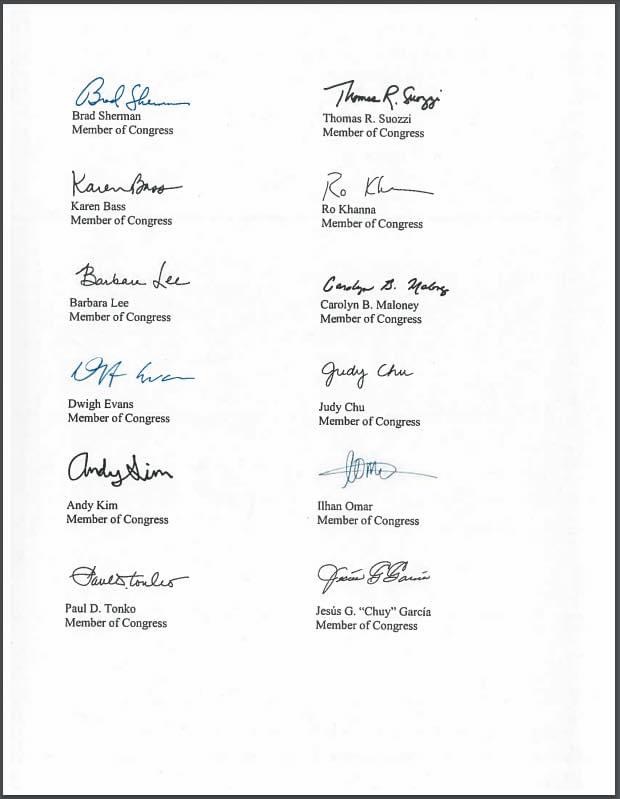 Brad Sherman
Brad Sherman
Member of Congress
Thomas R. Suozzi
Thomas R. Suozzi
Member of Congress
Karen Bass
Karen Bass
Member of Congress
Ro Khanna
Ro Khanna
Member of Congress
Barbara Lee
Barbara Lee
Member of Congress
Carolyn B. Maloney
Carolyn B. Maloney
Member of Congress
Dwigh Evans
Member of Congress
Judy Chu
Judy Chu
Member of Congress
Andy Kim
Andy Kim
Member of Congress
Ilhan Omar
Member of Congress
Paul D. Tonko
Paul D. Tonko
Member of Congress
Jesús G. García
Jesús G. “Chuy” García
Member of Congress